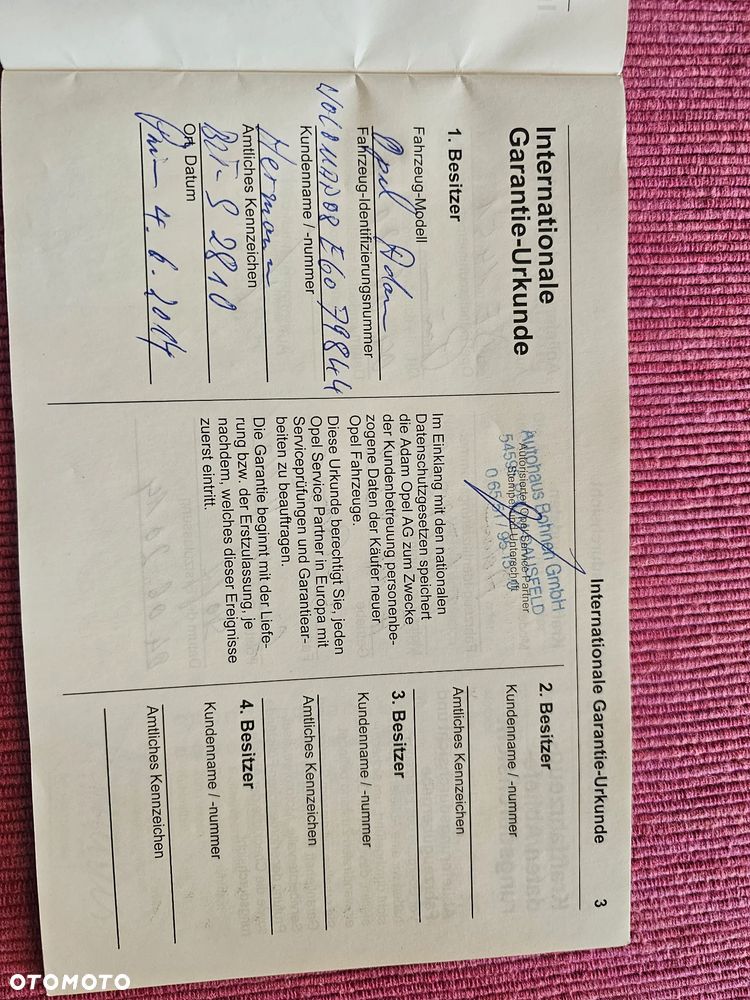 Internationale Garantie-Urkunde 3
Internationale
Garantie-Urkunde
1. Besitzer
Opel Adam
Fahrzeug-Modell
W0L0MAP08E6079844
Fahrzeug-Identifizierungsnummer
Hermann
Kundenname / -nummer
BIT-S 2810
Amtliches Kennzeichen
4.6.2014
Ort, Datum
Autohaus Bohnen GmbH
Autorisierter Opel Service Partner
Stempel und Unterschrift
Im Einklang mit den nationalen
Datenschutzgesetzen speichert
die Adam Opel AG zum Zwecke
der Kundenbetreuung personenbe-
zogene Daten der Käufer neuer
Opel Fahrzeuge.
Diese Urkunde berechtigt Sie, jeden
Opel Service Partner in Europa mit
Serviceprüfungen und Garantiear-
beiten zu beauftragen.
Die Garantie beginnt mit der Liefe-
rung bzw. der Erstzulassung, je
nachdem, welches dieser Ereignisse
zuerst eintritt.
2. Besitzer
Kundenname / -nummer
Amtliches Kennzeichen
3. Besitzer
Kundenname / -nummer
Amtliches Kennzeichen
4. Besitzer
Kundenname / -nummer
Amtliches Kennzeichen
OTOMOTO